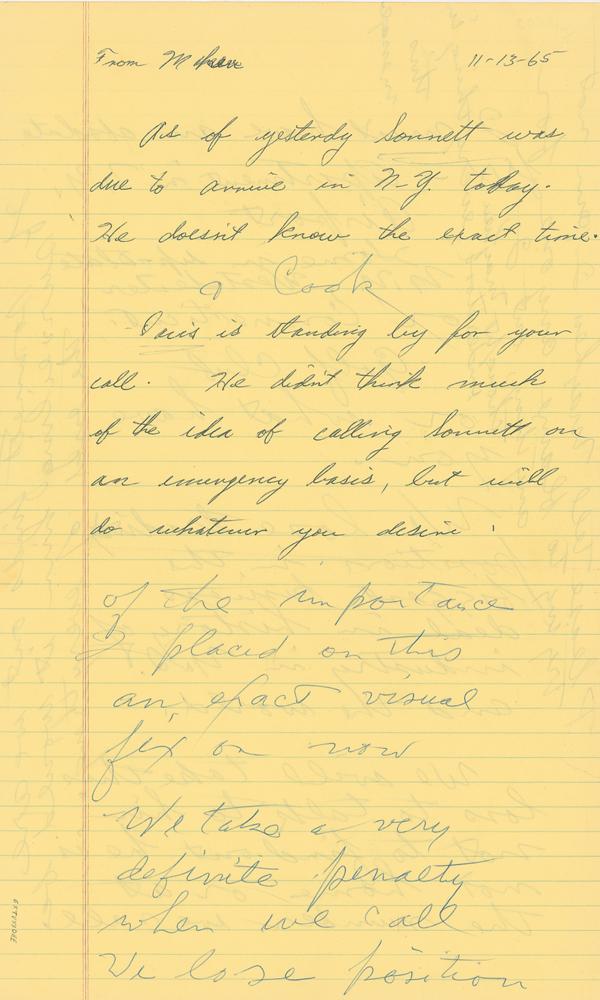 From M 11-13-65
As of yesterdy Sonnett was
due to arrive in N-Y. today.
He doesn't know the exact time.
Cook
Davis is standing by for your
call. He didn't think much
of the idea of calling Sonnett on
an emergency basis, but will
do whatever you desire.
of the importance
I placed on this
an exact visual
fix on now
We take a very
definite penalty
when we call
We lose position